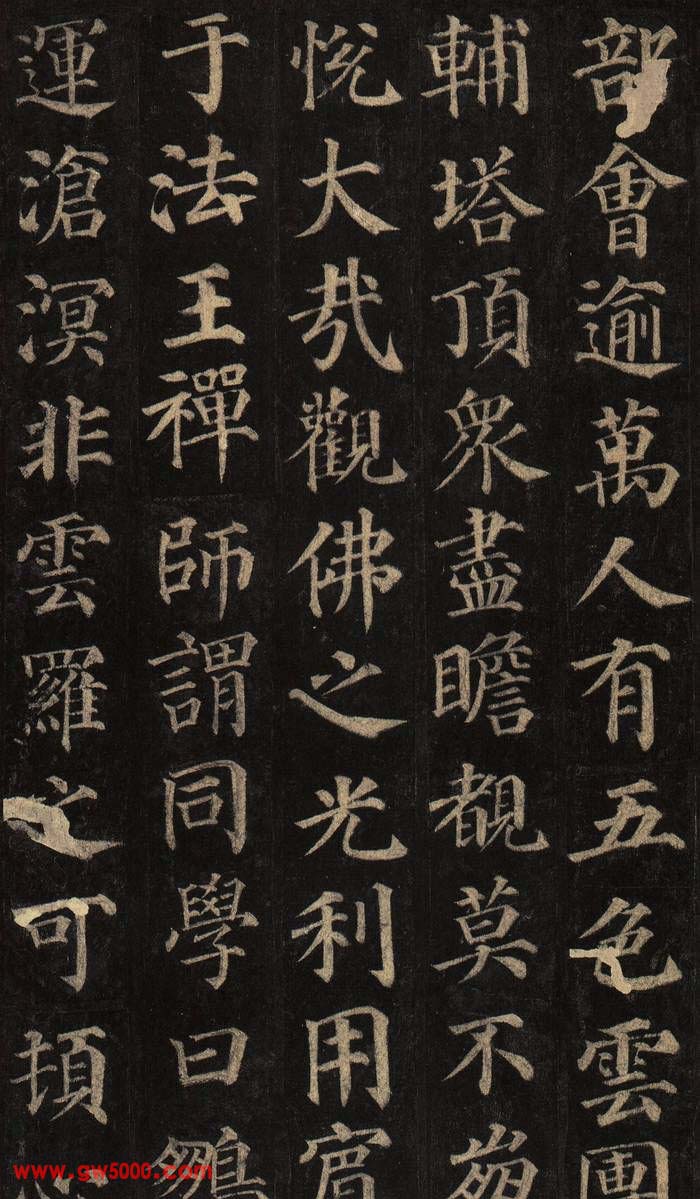 部會逾萬人有五色雲團
輔塔頂衆盡瞻覩莫不崩
悅大哉觀佛之光利用賓
于法王禪師謂同學曰鵬
運滄溟非雲羅之可頓心
www.gw5000.com